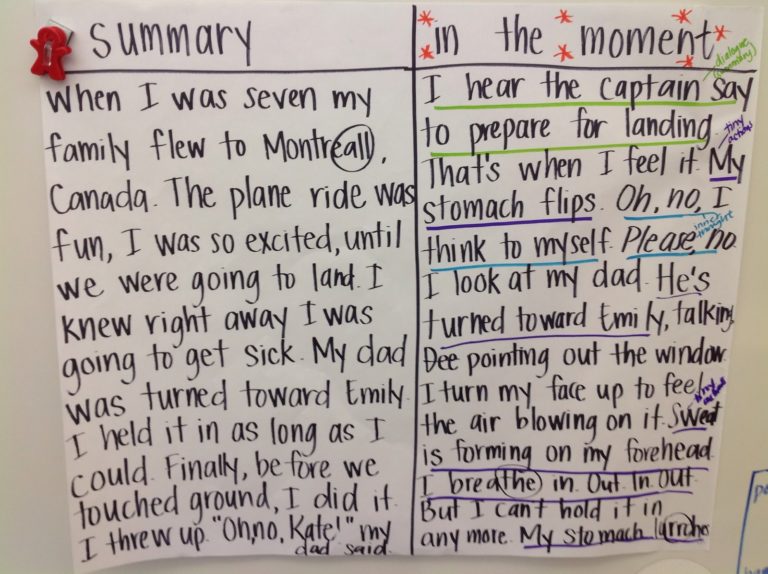 summary
When I was seven my
family flew to Montreall,
Canada. The plane ride was
fun, I was so excited, until
we were going to land. I
knew right away I was
going to get sick. My dad
was turned toward Emily.
I held it in as long as I
could. Finally, before we
touched ground, I did it.
I threw up. "Oh, no, Kate!" my
dad said.
in the moment
dialogue
(summary)
I hear the captain say
to prepare for landing.
tiny
actions
That's when I feel it. My
stomach flips. Oh, no, I
inner
thought
think to myself. Please, no.
I look at my dad. He's
turned toward Emily, talking,
Dee pointing out the window.
I turn my face up to feel
tiny
the air blowing on it. Sweat
is forming on my forehead.
I breathe in. Out. In. Out.
But I can't hold it in
any more. My stomach